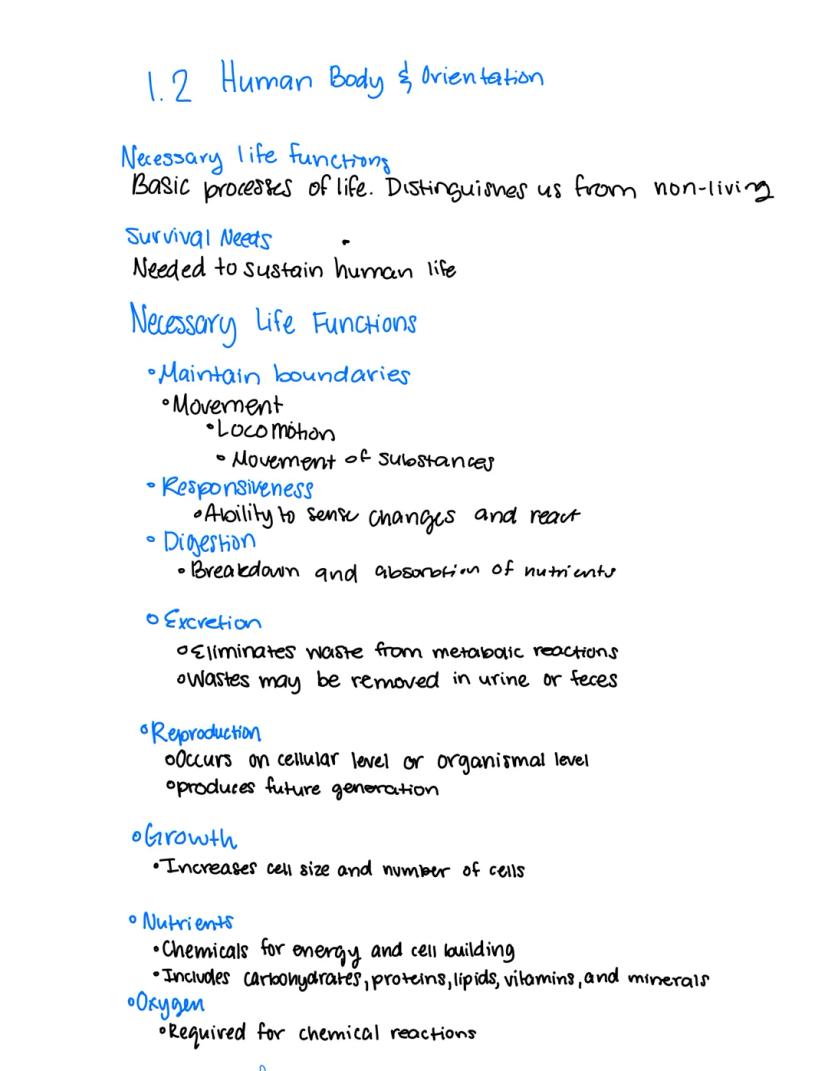 1.2 Human Body & Orientation
Necessary life functions
Basic processes of life. Distinguishes us from non-living
Survival Needs
Needed to sustain human life
Necessary Life Functions
◦Maintain boundaries
◦Movement
•Locomotion
•Movement of substances
◦Responsiveness
•Ability to sense changes and react
◦Digestion
•Breakdown and absorbtion of nutrients
◦Excretion
◦Eliminates waste from metabolic reactions
◦Wastes may be removed in urine or feces
◦Reproduction
◦Occurs on cellular level or organismal level
◦produces future generation
◦Growth
•Increases cell size and number of cells
◦Nutrients
•Chemicals for energy and cell building
•Includes carbohydrates, proteins, lipids, vitamins, and minerals
◦Oxygen
•Required for chemical reactions